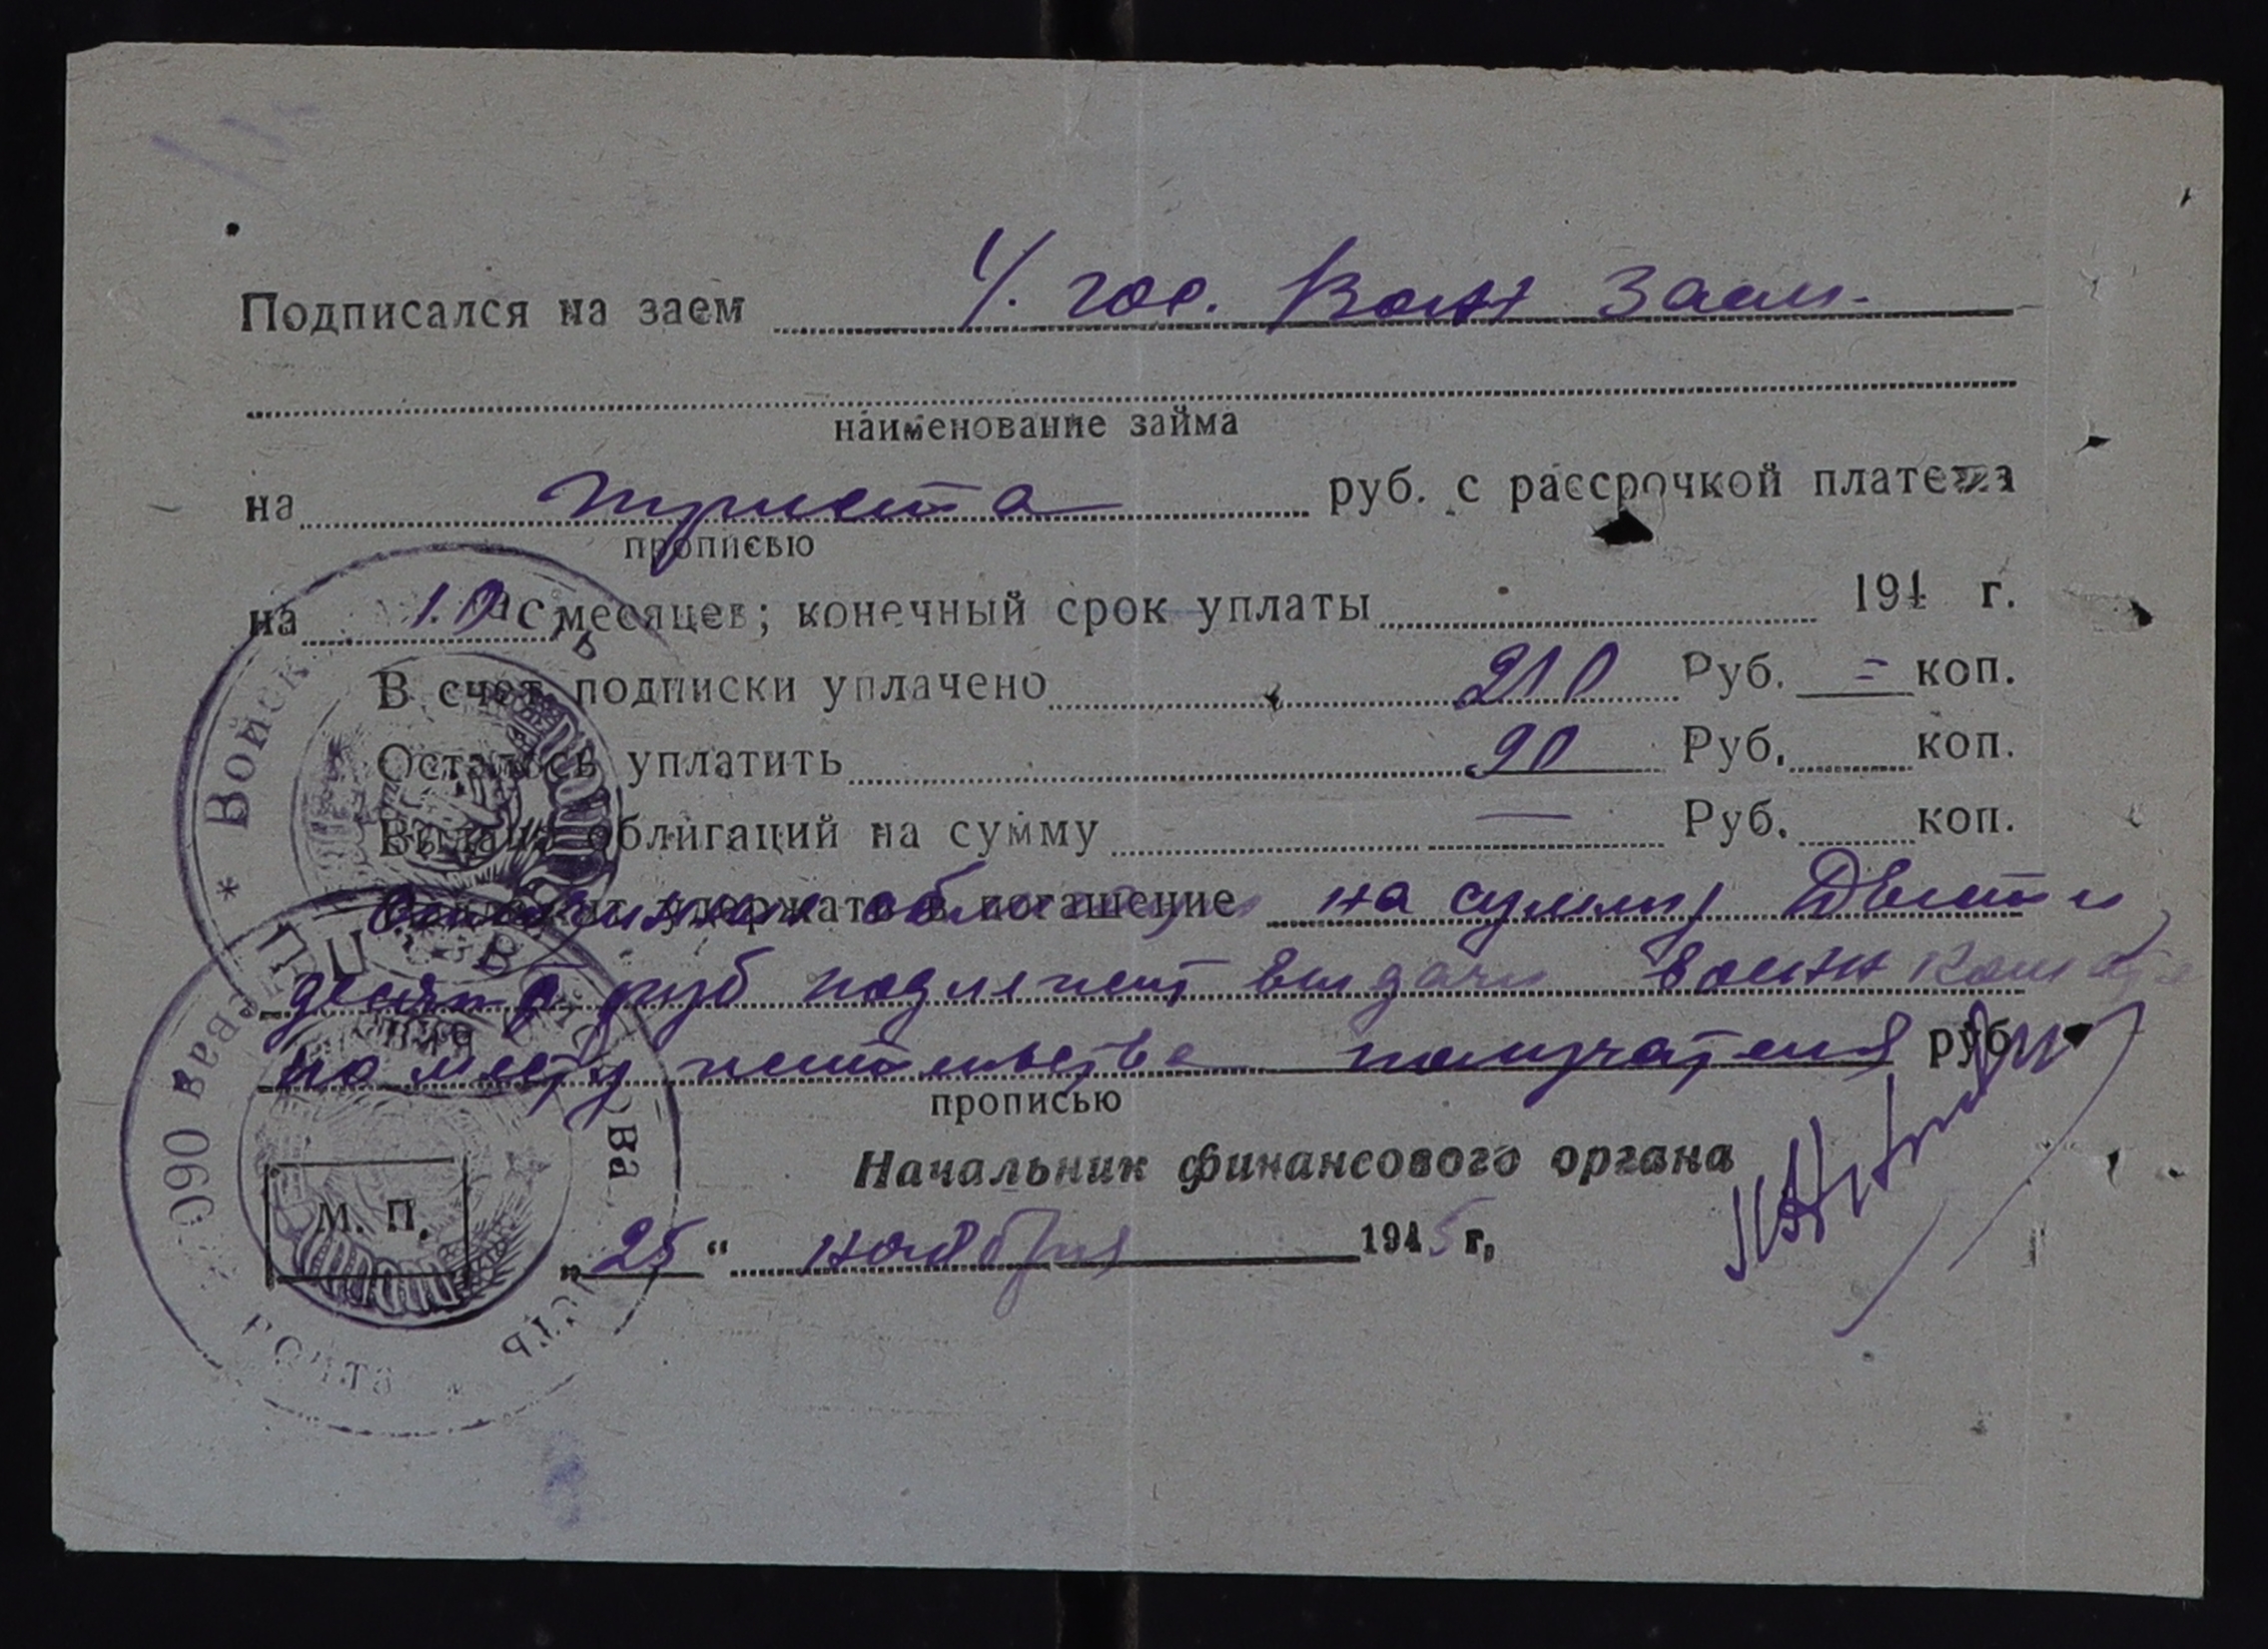 Подписался на заем 4. гос. Воен заем.
наименование займа
на триста руб. с рассрочкой платежа
прописью
на 10 месяцев; конечный срок уплаты 194 г.
В счет подписки уплачено 210 Руб. = коп.
Осталось уплатить 90 Руб. коп.
Выдано облигаций на сумму — Руб. коп.
удержать в погашение на сумму Двести
десять руб подлежат выдачи военн
по месту жительства получателя руб.
прописью
Начальник финансового органа
М. П.
„25“ ноября 1945 г.
* Войск
Полевая
почта
часть
060